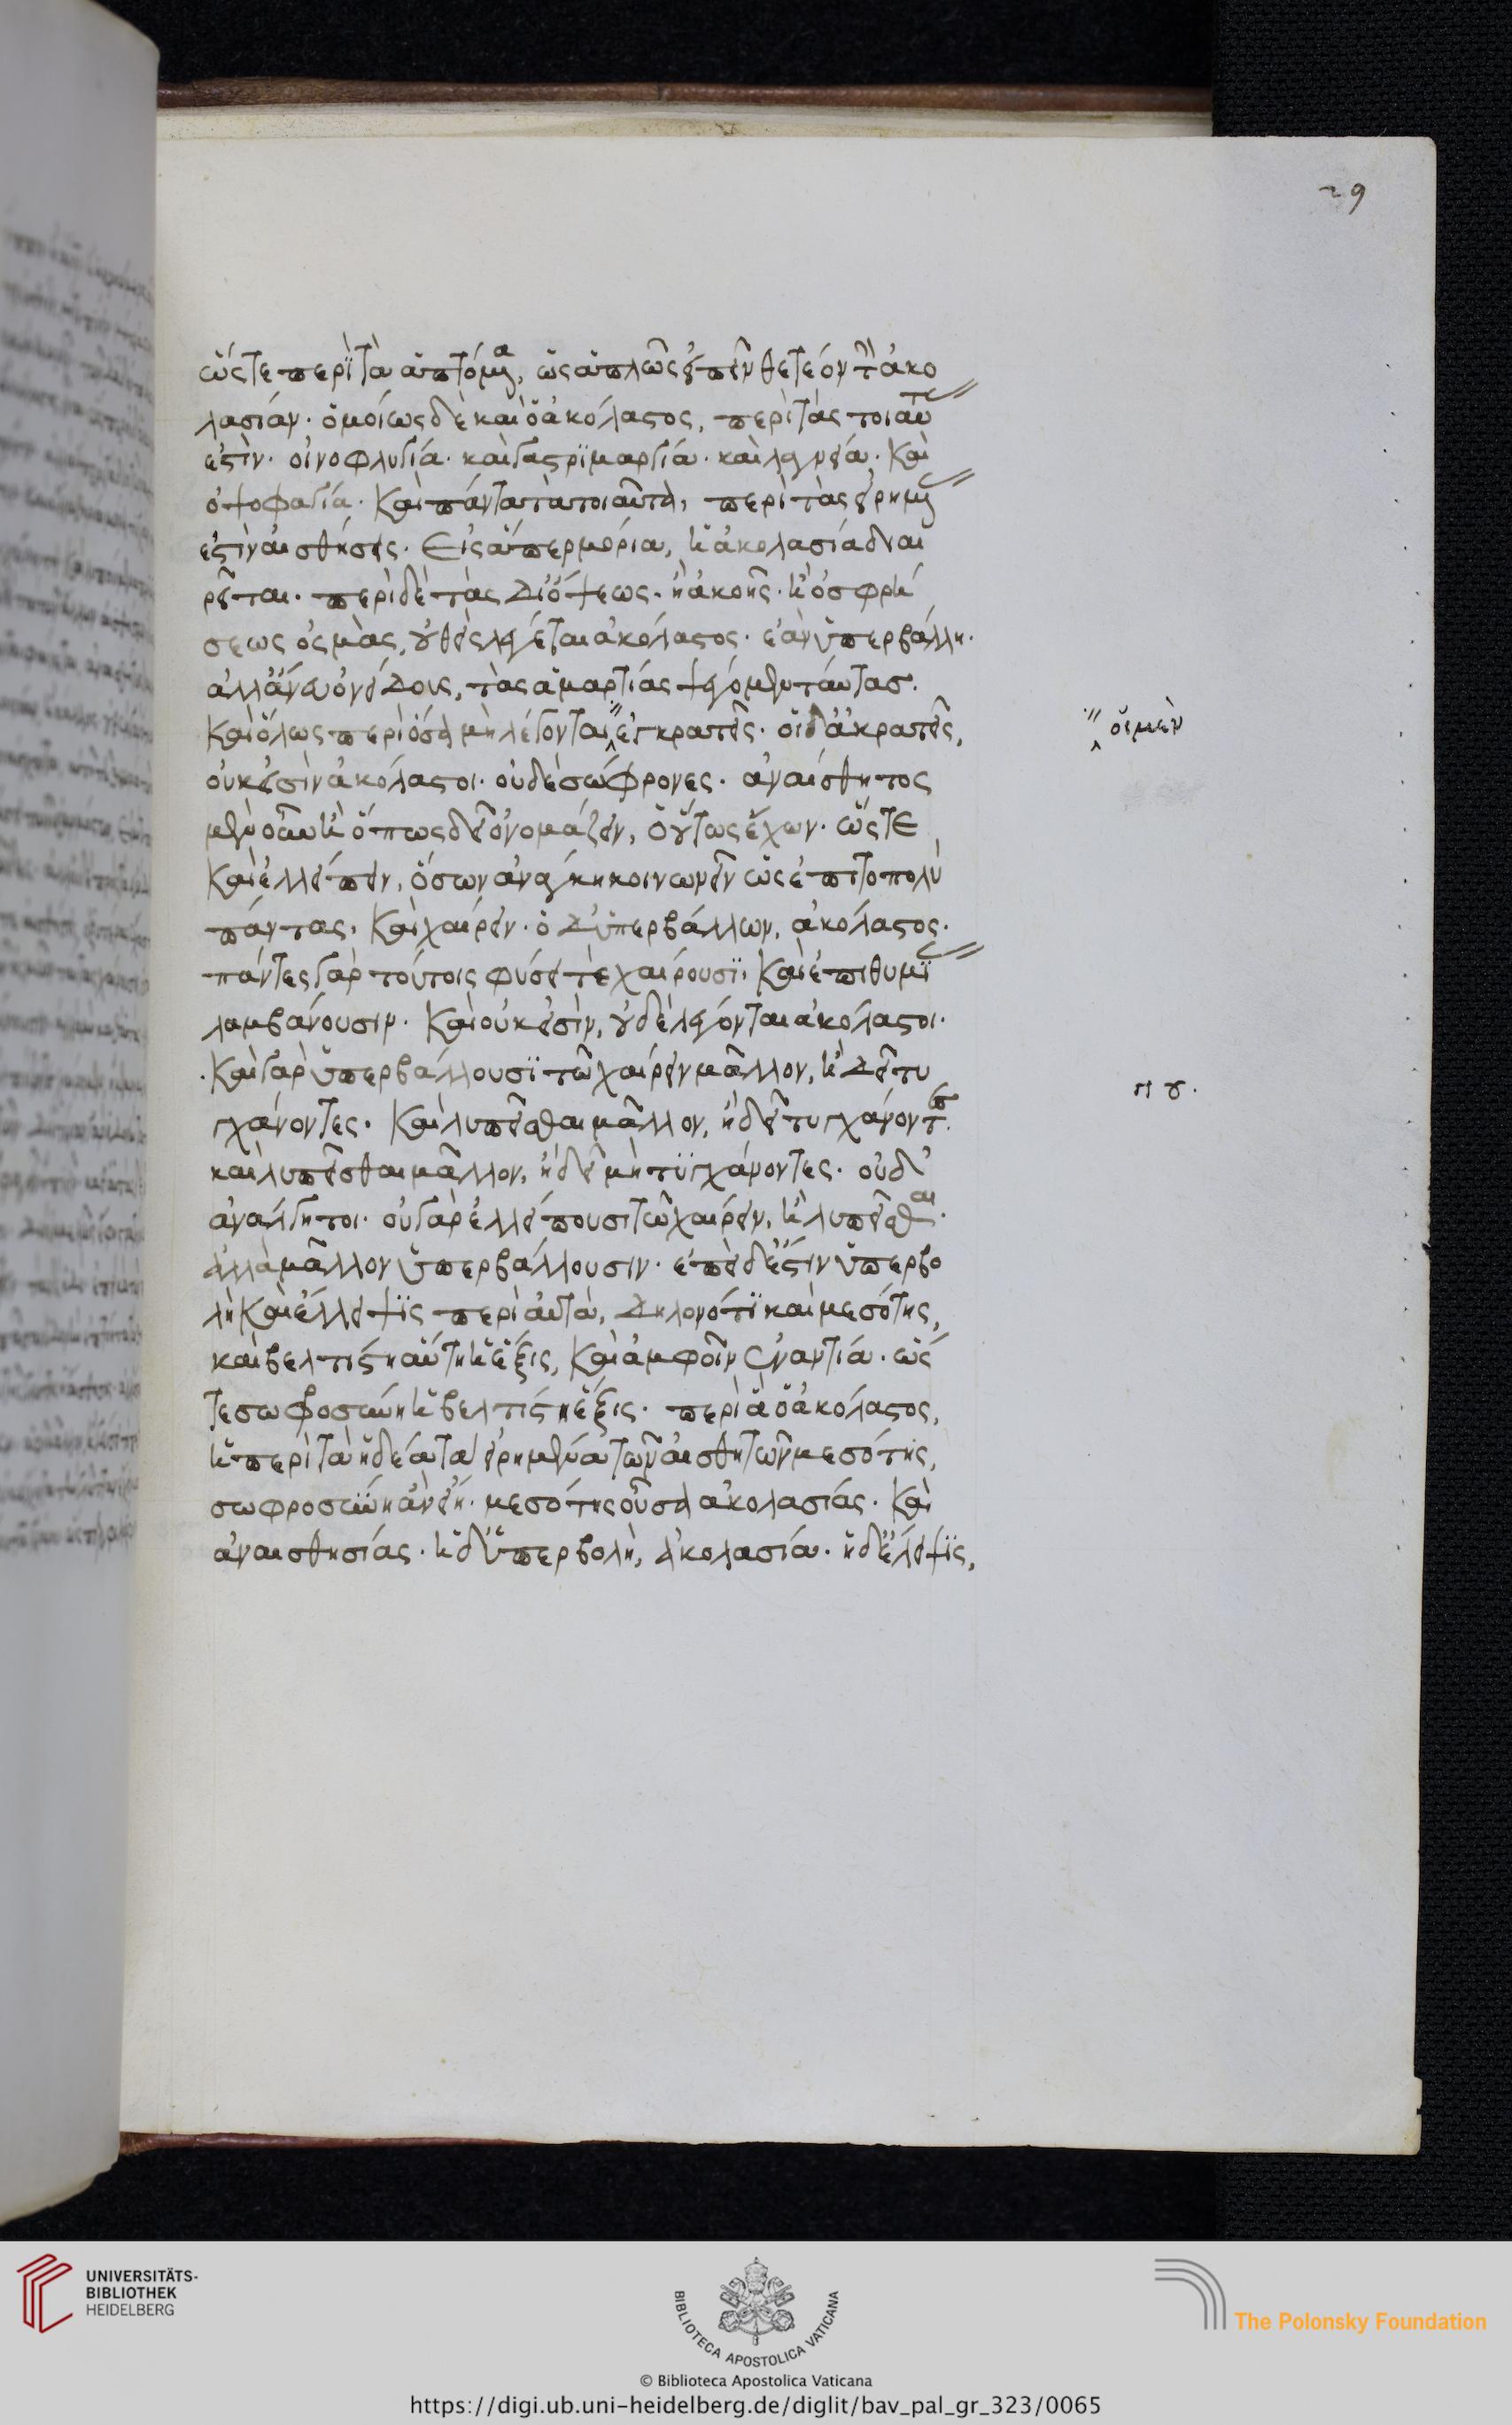 29
ὥςτε περὶ τὰ ἁπτόμενα, ὡς ἁπλῶς εἰπεῖν θετέον τὴν ἀκο
λασίαν. ὁμοίως δὲ καὶ ὁ ἀκόλαστος, περὶ τὰς τοιαύτ
ἐστίν. οἰνοφλυγία. καὶ γαστριμαργία. καὶ λαγνεία. καὶ
ὀψοφαγία. καὶ πάντα τὰ τοιαῦτα, περὶ τὰς εἰρημέν
ἐστὶν αἰσθήσεις. εἰς ἅπερ μόρια, ἡ ἀκολασία διαι
ρεῖται. περὶ δὲ τὰς δι' ὄψεως. ἢ ἀκοῆς. ἢ ὀσφρή
σεως ὀσμὰς, οὐθεὶς λέγεται ἀκόλαστος. ἐὰν ὑπερβάλλη.
ἀλλ' ἄνευ ὀνείδους, τὰς ἁμαρτίας ψέγομεν ταύτας.
καὶ ὅλως περὶ ὅσα μὴ λέγονται ἐγκρατεῖς. οἱ δ' ἀκρατεῖς,
οἱ μὲν
οὐκ εἰσὶν ἀκόλαστοι. οὐδὲ σώφρονες. ἀναίσθητος
μὲν οὖν ἢ ὅπως δεῖ ὀνομάζειν, ὁ οὕτως ἔχων. ὥςτε
καὶ ἐλλείπειν, ὅσων ἀνάγκη κοινωνεῖν ὡς ἐπιτοπολὺ
πάντας, καὶ χαίρειν. ὁ δ' ὑπερβάλλων, ἀκόλαστος.
πάντες γὰρ τούτοις φύσει τὲ χαίρουσι, καὶ ἐπιθυμί
λαμβάνουσιν. καὶ οὐκ εἰσὶν, οὐδὲ λέγονται ἀκόλαστοι.
καὶ γὰρ ὑπερβάλλουσι τῶ χαίρειν μᾶλλον, ἢ δεῖ τυ
πγ.
γχάνοντες. καὶ λυπεῖσθαι μᾶλλον, ἢ δεῖ τυγχάνοντες.
καὶ λυπεῖσθαι μᾶλλον, ἢ δεῖ μὴ τυγχάνοντες. οὐδ'
ἀνάλγητοι. οὐ γὰρ ἐλλείπουσι τῶ χαίρειν, ἢ λυπεῖσθαι.
ἀλλὰ μᾶλλον ὑπερβάλλουσιν. ἐπεὶ δ' ἔστιν ὑπερβο
λὴ καὶ ἔλλειψις περὶ αὐτὰ, δηλονότι καὶ μεσότης,
καὶ βελτίστη αὕτη ἡ ἕξις, καὶ ἀμφοῖν ἐναντία. ὥς
τε σωφροσύνη ἡ βελτίστη ἕξις. περὶ ἃ ὁ ἀκόλαστος,
ἡ περὶ τὰ ἡδέα τὰ εἰρημένα τῶν αἰσθητῶν μεσότης,
σωφροσύνη ἂν εἴη. μεσότης οὖσα ἀκολασίας. καὶ
ἀναισθησίας. ἡ δ' ὑπερβολὴ, ἀκολασία. ἡ δ' ἔλειψις,
UNIVERSITÄTS-
BIBLIOTHEK
HEIDELBERG
BIBLIOTECA APOSTOLICA VATICANA
The Polonsky Foundation
© Biblioteca Apostolica Vaticana
https://digi.ub.uni-heidelberg.de/diglit/bav_pal_gr_323/0065